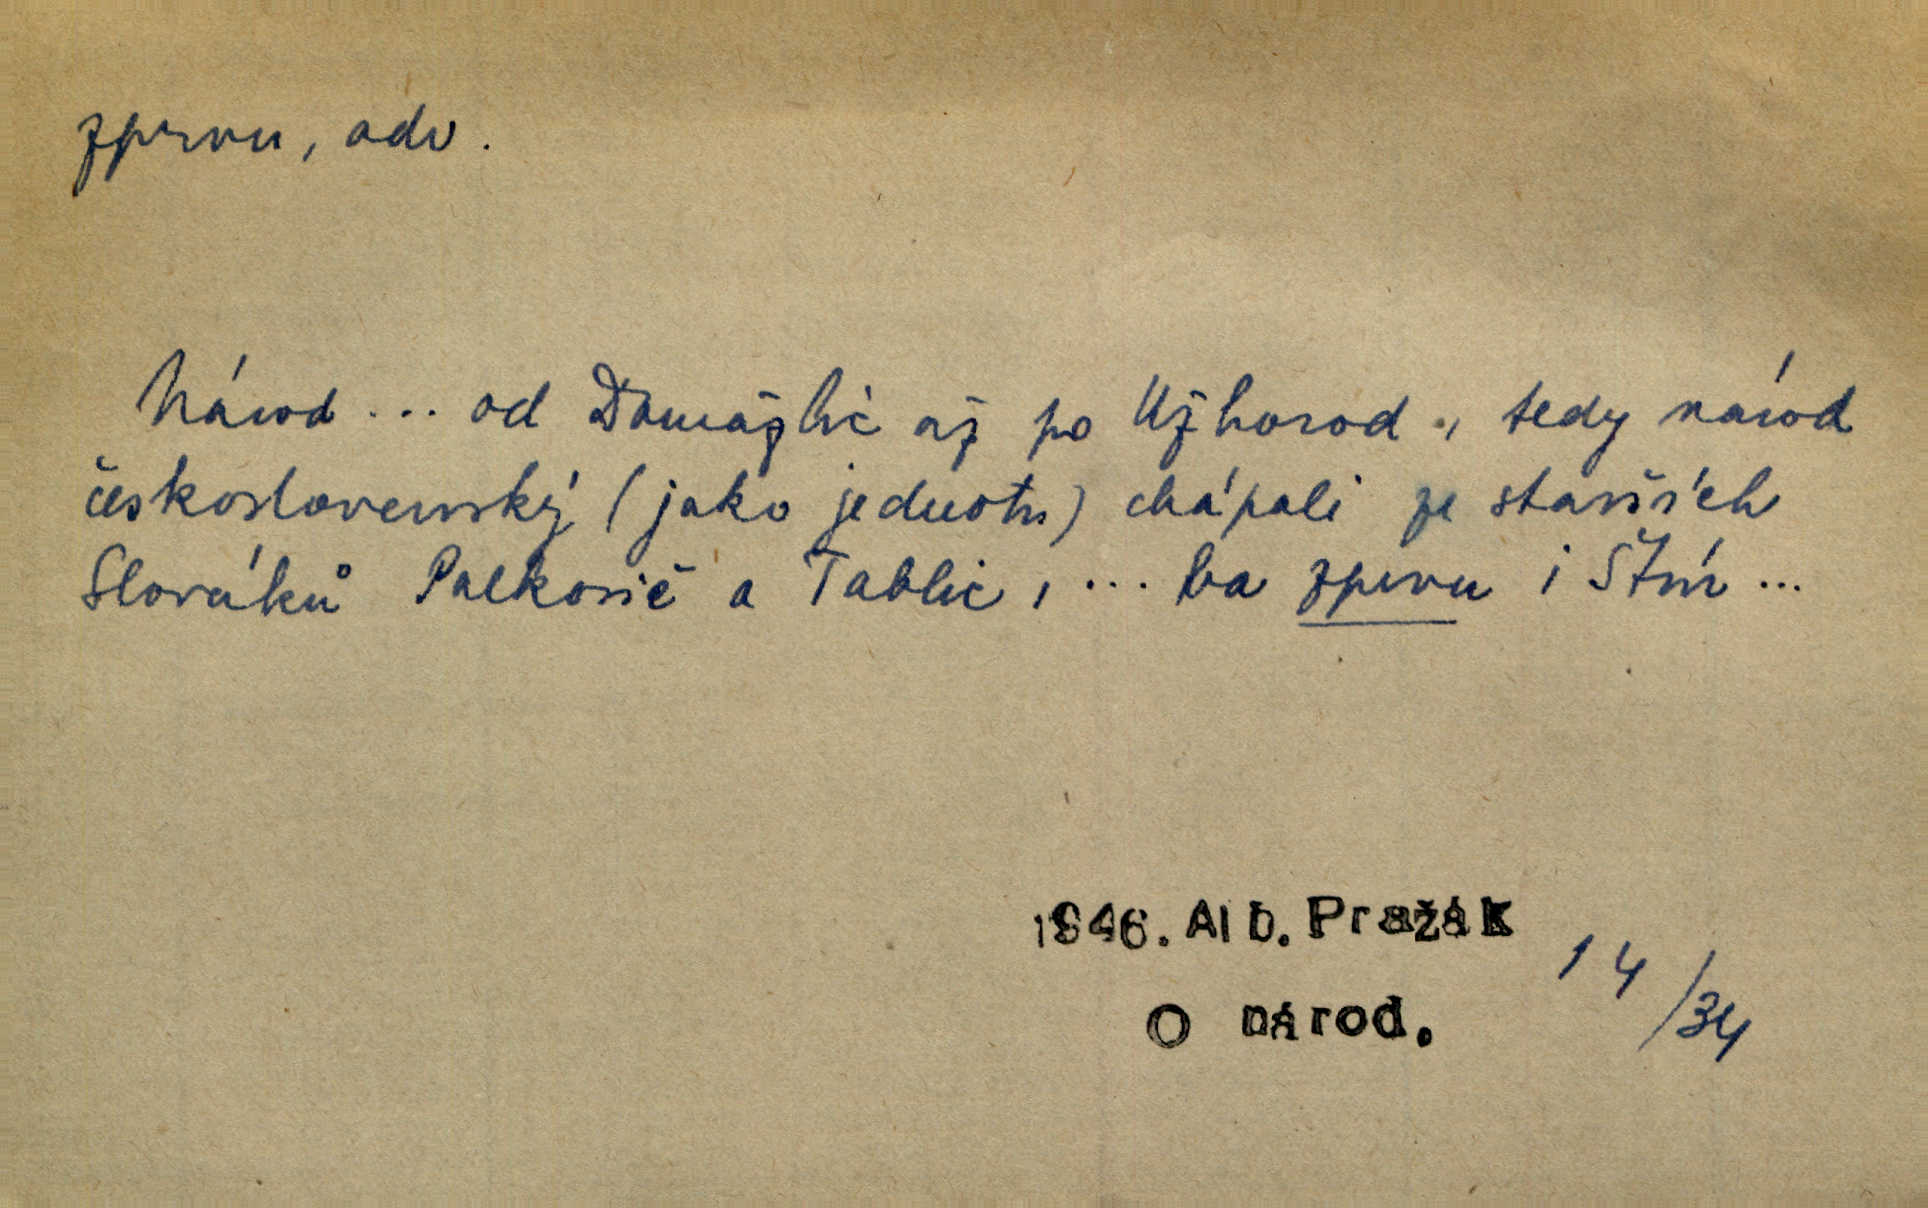 zprvu, adv.
Národ ... od Domažlic až po Užhorod, tedy národ
československý (jako jednotu) chápali ze starších
Slováků Palkovič a Tablic, ... ba zprvu i Štúr ...
1946. Alb. Pražák
O národ.
14/34